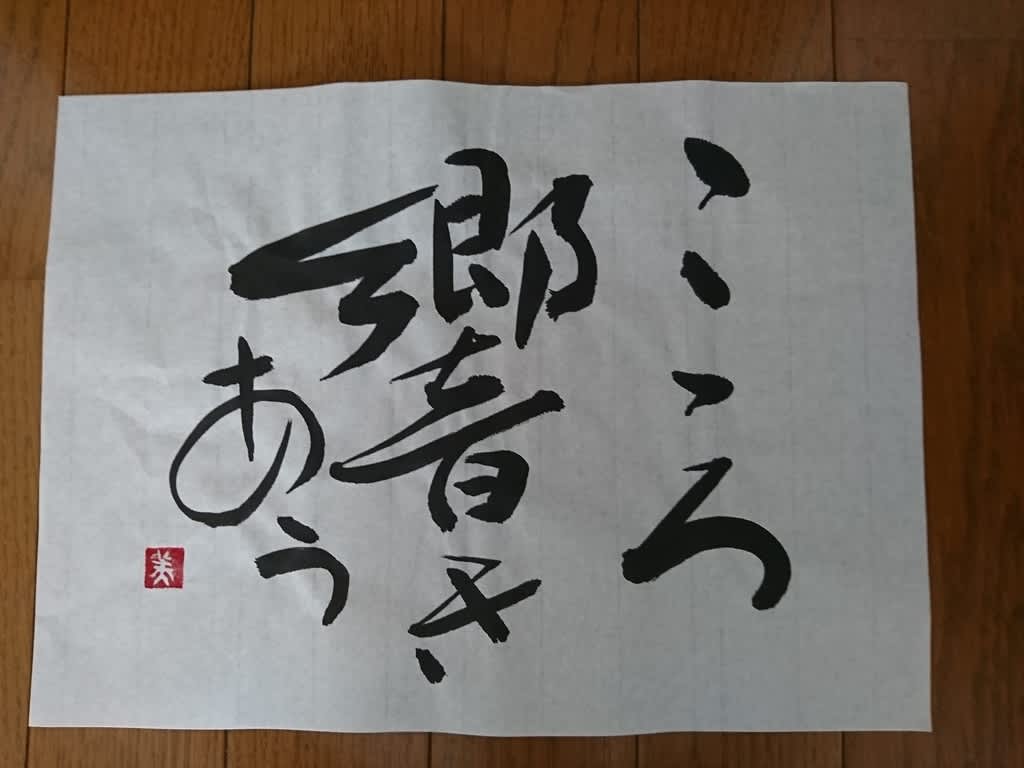 こころ
響き
あう
美